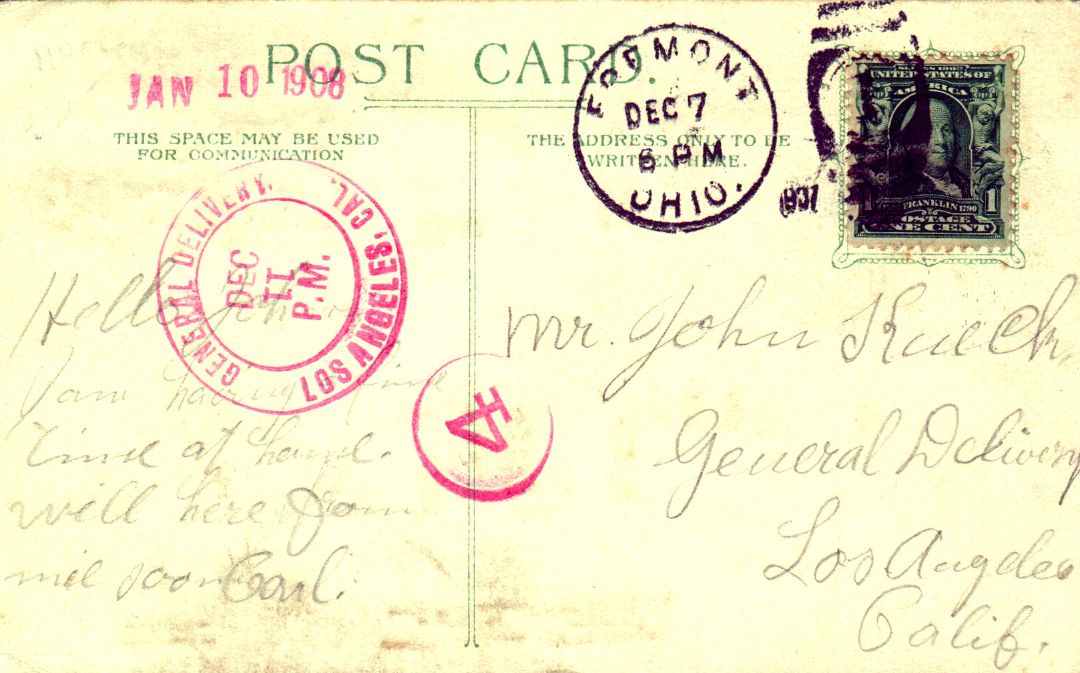 POST CARD.
JAN 10 1908
THIS SPACE MAY BE USED
FOR COMMUNICATION
THE ADDRESS ONLY TO BE
WRITTEN HERE.
FREMONT
DEC 7
6 PM
OHIO.
1907
SERIES 1902
UNITED STATES OF
AMERICA
FRANKLIN 1790
POSTAGE
1
ONE CENT
GENERAL DELIVERY,
LOS ANGELES, CAL.
DEC
11
P.M.
4
Hello John
I am having fine
time at home.
will here from
me soon Carl.
Mr. John Kueck,
General Delivery
Los Angeles
Calif.